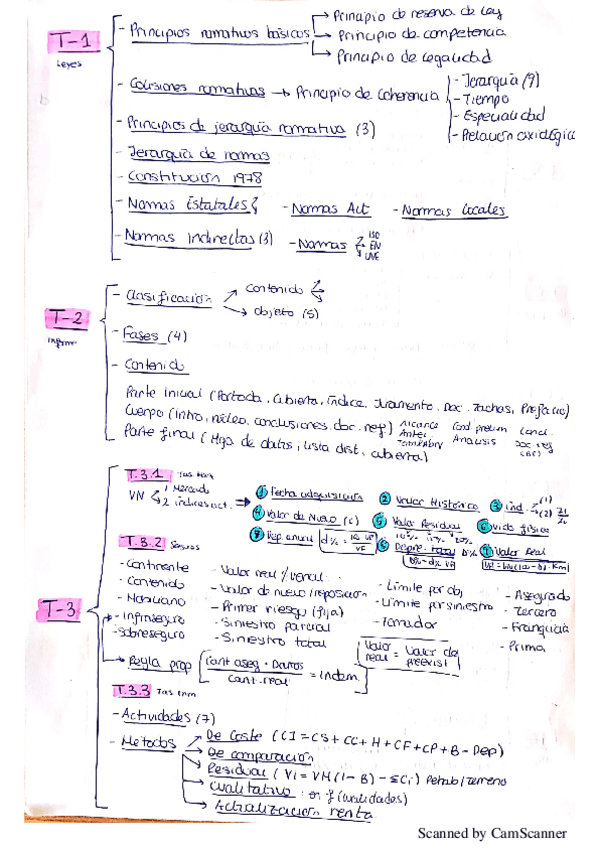 T-1
Leyes
- Principios normativos básicos
→ Principio de reserva de ley
→ Principio de competencia
→ Principio de legalidad
- Colisiones normativas → Principio de coherencia
- Jerarquía (9)
- Tiempo
- Especialidad
- Relación axiológica
- Principios de jerarquía normativa (3)
- Jerarquía de normas
- Constitución 1978
- Normas Estatales { - Normas Aut - Normas locales
- Normas Indirectas (3) - Normas
ISO
EN
UNE
T-2
- Clasificación
contenido
objeto (5)
- Fases (4)
- Contenido
Parte inicial (Portada, cubierta, índice, Juramento, Doc. Tachas, Prefacio)
Cuerpo (Intro, núcleo, conclusiones, doc. ref)
Alcance
Antec
Análisis
Doc. ref
Parte final (Hoja de datos, lista dist, cubierta)
T-3
T.3.1
VN
1 Mercado
2 índices act. →
① Fecha adquisición ② Valor Histórico ③ Ind.
④ Valor de Nuevo (c) ⑤ Valor Residual ⑥ Vida física
10% 20%
⑦ Dep. anual
⑧ Depre. total D%
Valor Real
T.3.2 Seguros
- Continente - Valor real / venal - Límite por obj - Asegurado
- Contenido - Valor de nuevo/reposición - Límite por siniestro - Tercero
- Mobiliario - Primer riesgo (fija) - Tomador - Franquicia
- Infraseguro - Siniestro parcial - Prima
- Sobreseguro - Siniestro total
Valor real = Valor de preexist
→ Regla prop
Cant aseg · Daños / Cant. real = Indem.
T.3.3 Tas inm
- Actividades (7)
- Métodos
De Coste (CI = CS + CC + H + CF + CP + B - Dep)
De comparación
Residual (VI = VM (1 - B) - ΣCi) Rehab/terreno
Cualitativo: or f (cualidades)
Actualización renta
Scanned by CamScanner